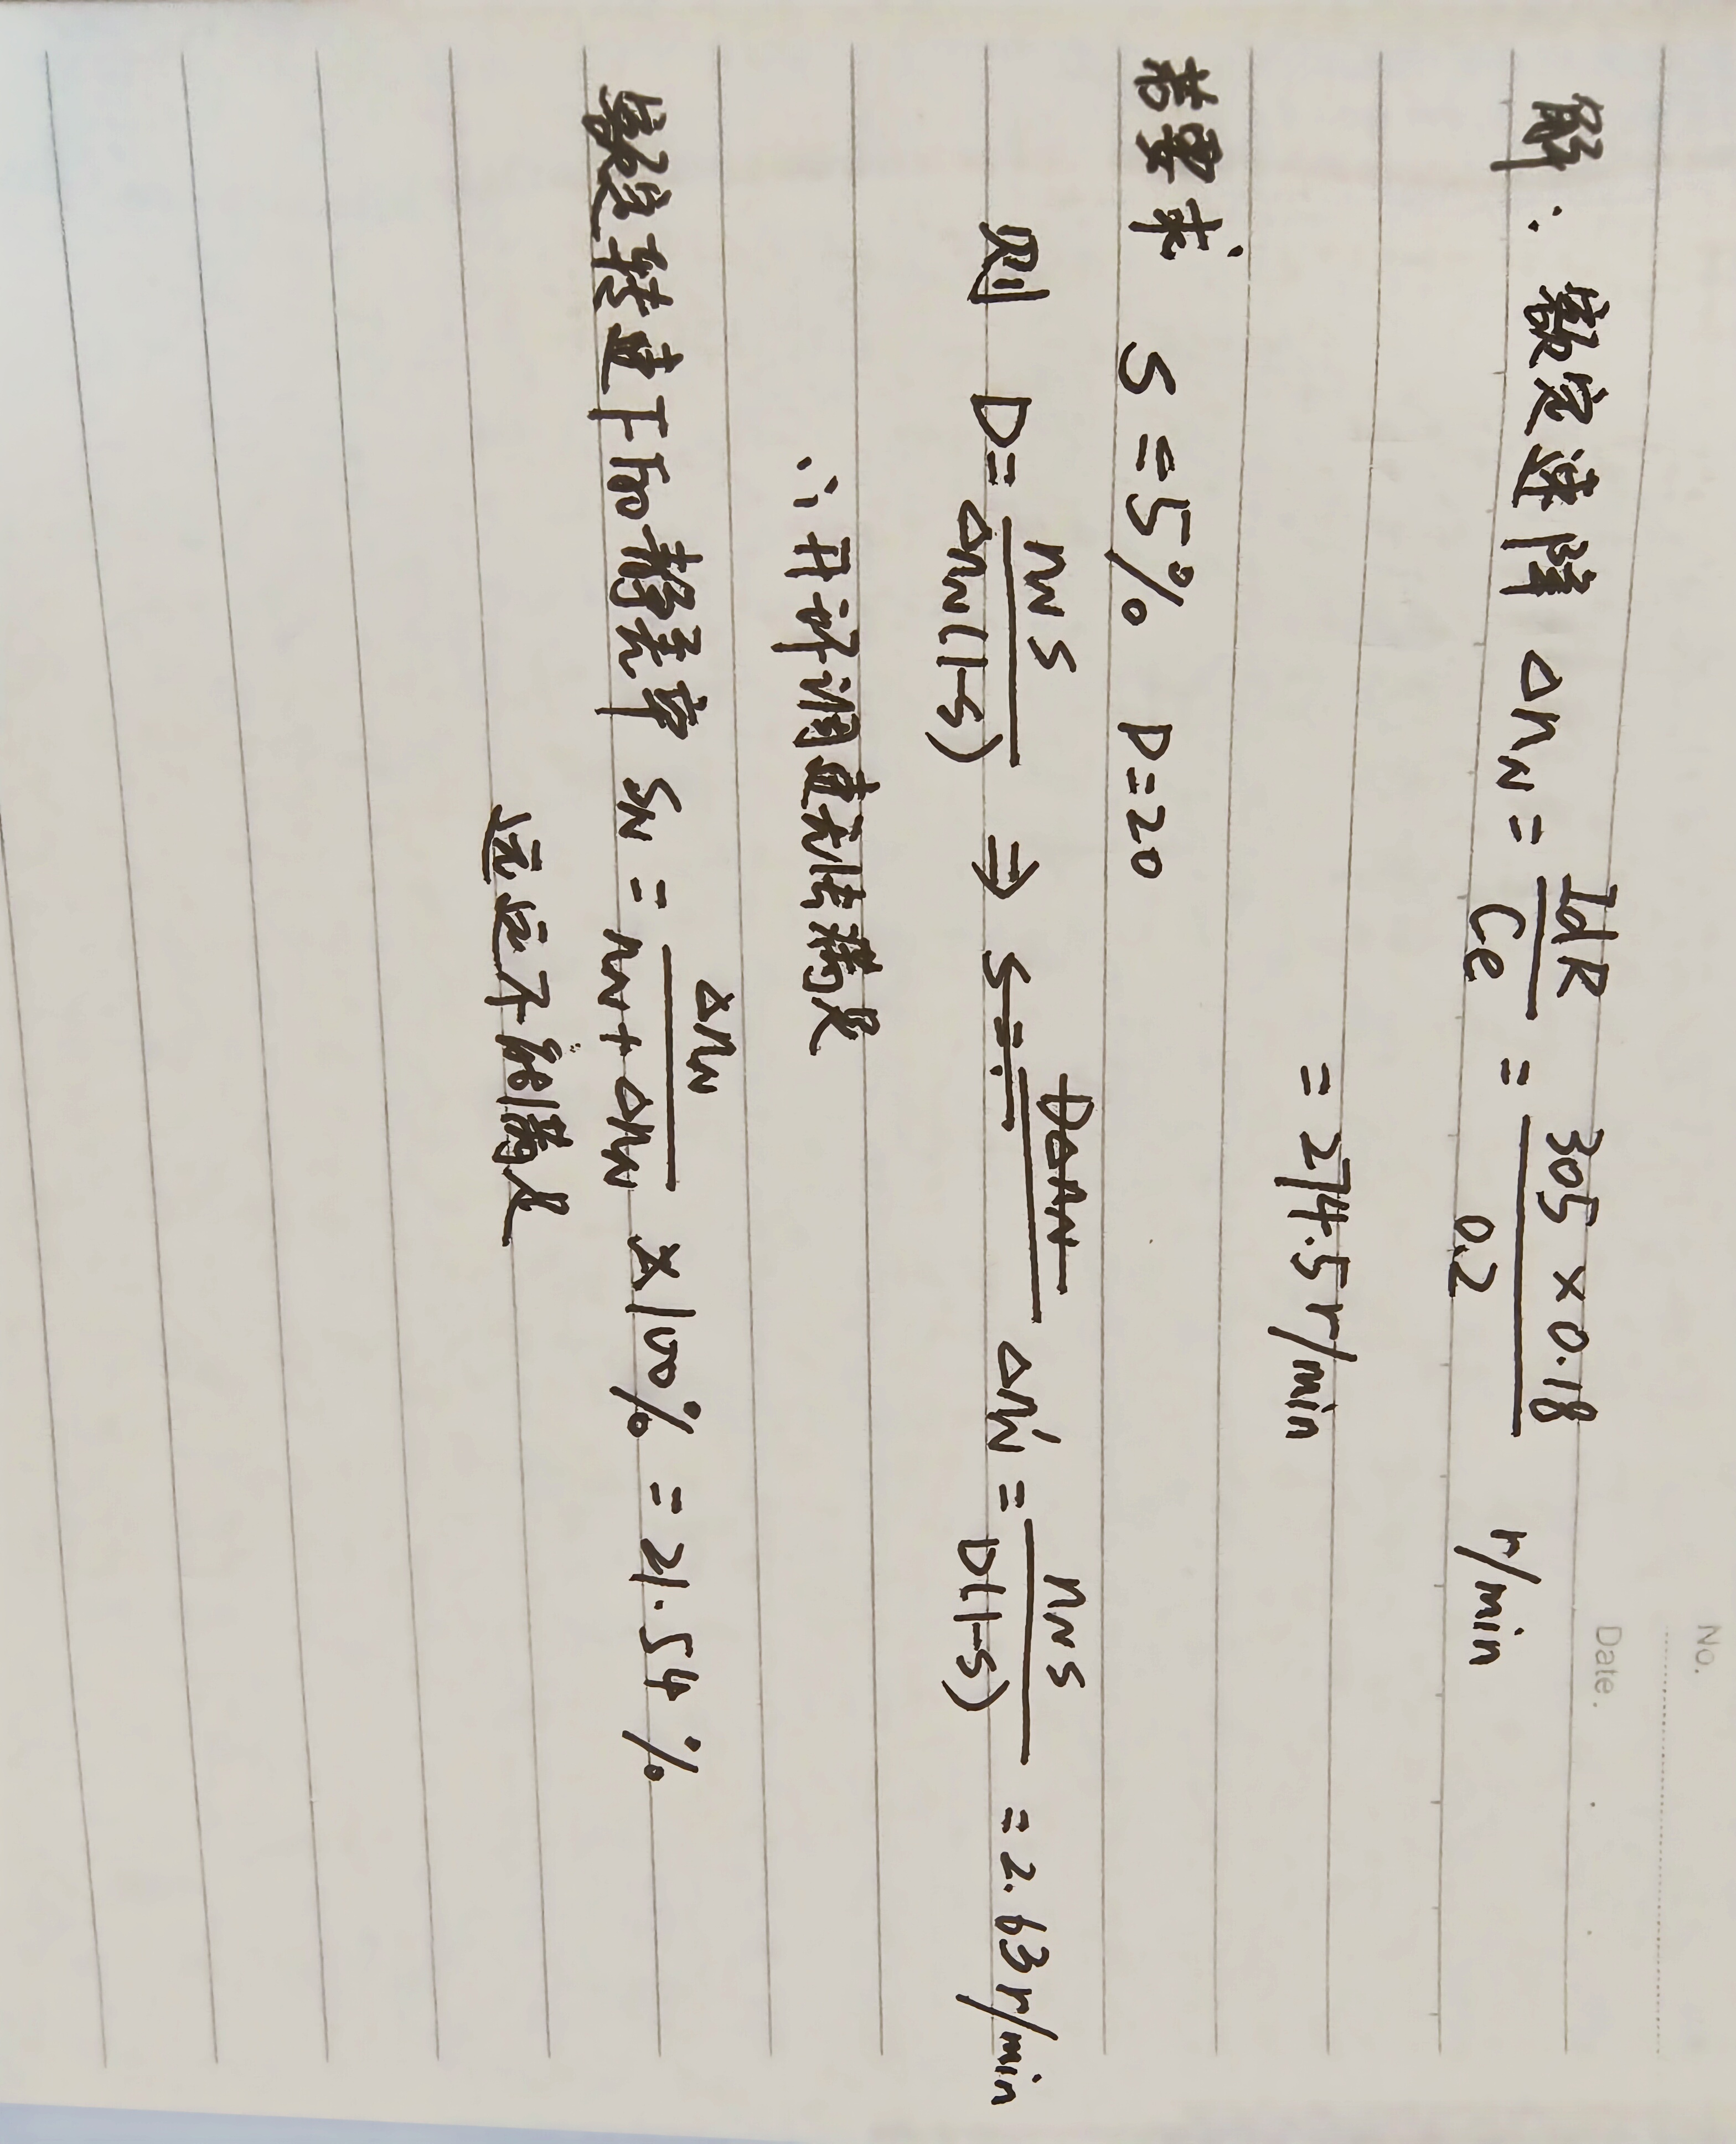 No.
Date.
解: 额定速降 Δn_N = IdR/Ce = 305×0.18/0.2 r/min
= 274.5 r/min
若要求 S=5% D=20
则 D= n_N S/Δn_N(1-S) ⇒ Δn_N' = n_N S/D(1-S) = 2.63 r/min
∴ 开环调速无法满足
额定转速下的静差率 S_N = Δn_N/n_N+Δn_N ×100% = 21.54%
远远不能满足